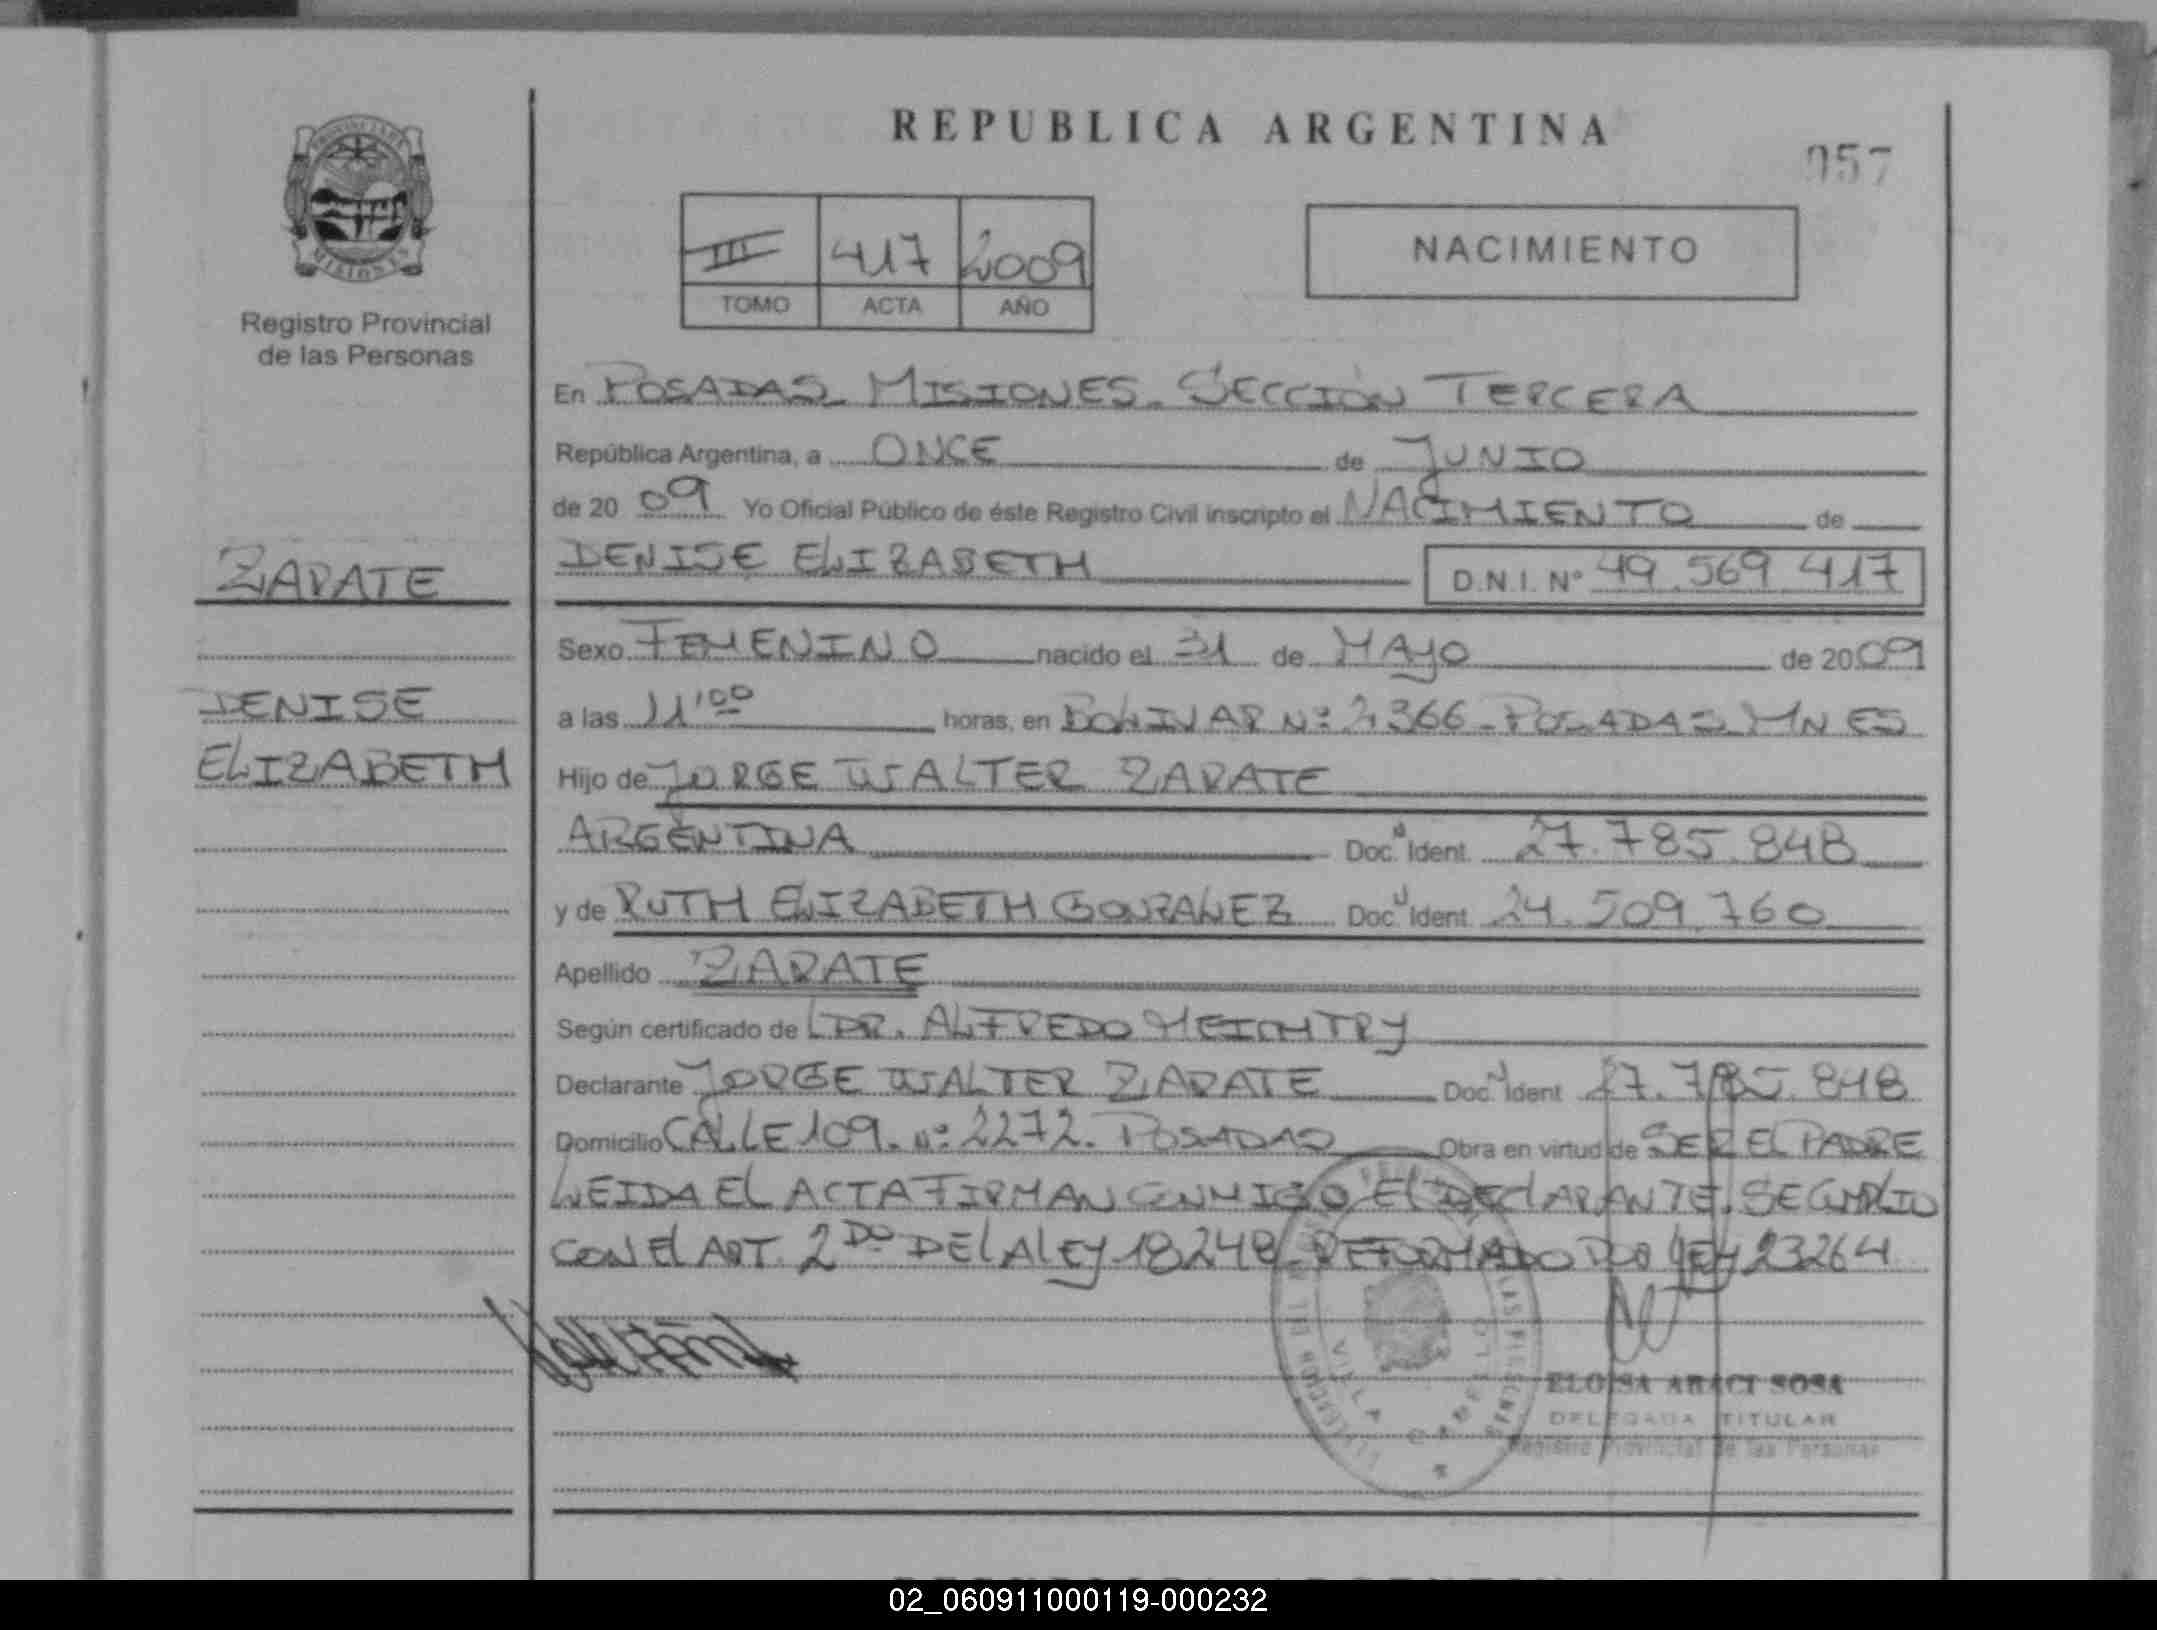 REPUBLICA ARGENTINA
057
PROVINCIA DE
MISIONES
Registro Provincial
de las Personas
III 417 2009
TOMO ACTA AÑO
NACIMIENTO
En POSADAS MISIONES. SECCIÓN TERCERA
República Argentina, a ONCE de JUNIO
de 2009 Yo Oficial Público de éste Registro Civil inscripto el NACIMIENTO de
ZARATE
DENISE ELIZABETH D.N.I. Nº 49.569.417
Sexo FEMENINO nacido el 31 de MAYO de 2009
DENISE
a las 11'00 horas, en BOLIVAR Nº 2366 - POSADAS MNES
ELIZABETH
Hijo de JORGE WALTER ZARATE
ARGENTINA Doc. Ident. 27.785.848
y de RUTH ELIZABETH GONZALEZ Doc. Ident. 24.509.760
Apellido ZARATE
Según certificado de DR. ALFREDO MEICHTRY
Declarante JORGE WALTER ZARATE Doc. Ident 27.785.848
Domicilio CALLE 109. Nº 2272. POSADAS Obra en virtud de SER EL PADRE
LEIDA EL ACTA FIRMAN CONMIGO EL DECLARANTE. SE CUMPLIO
CON EL ART. 2DO DE LA LEY 18248 REFORMADO POR LEY 23264
VILLA CABELLO
ELOISA ARACI SOSA
DELEGADA TITULAR
Registro Provincial de las Personas
02_060911000119-000232